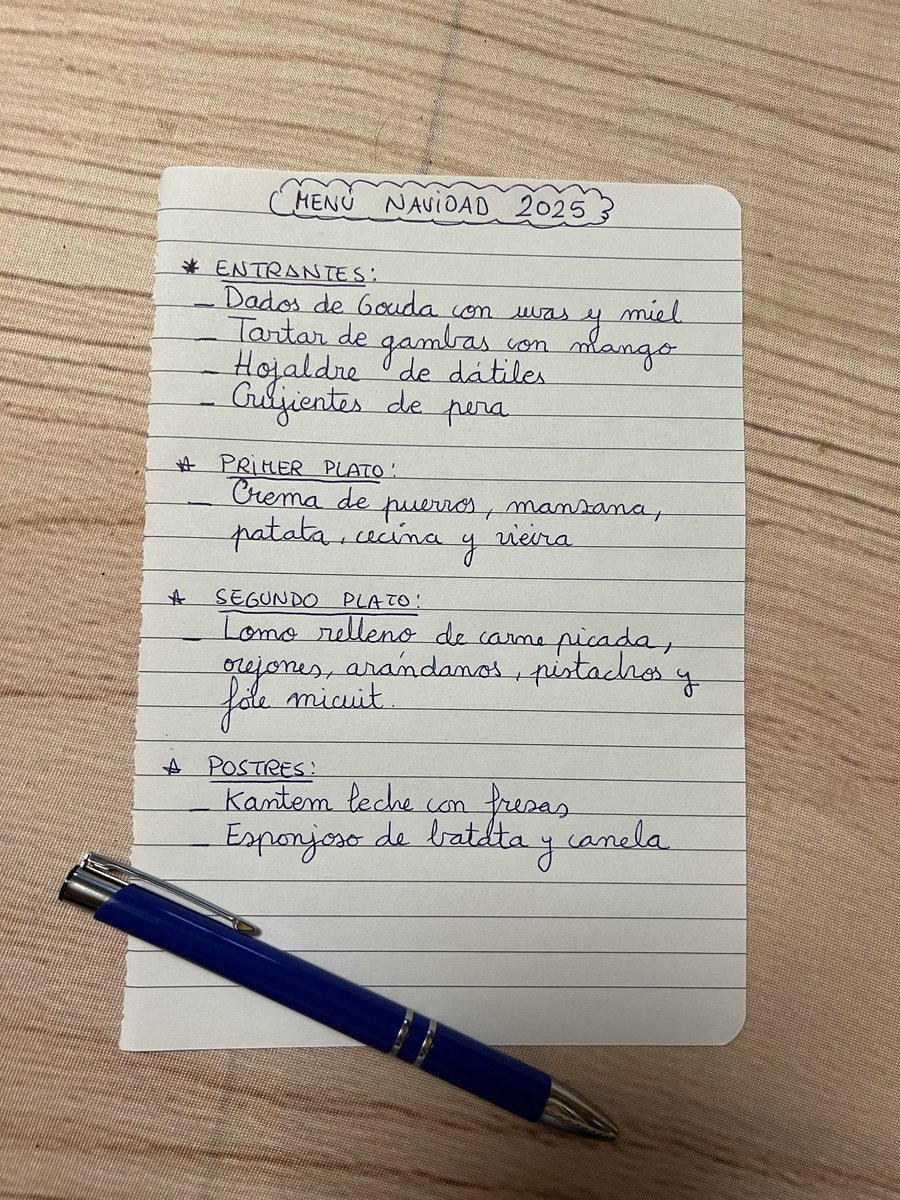 MENÚ NAVIDAD 2025
* ENTRANTES:
- Dados de Gouda con uvas y miel
- Tartar de gambas con mango
- Hojaldre de dátiles
- Crujientes de pera
* PRIMER PLATO:
- Crema de puerros, manzana,
patata, cecina y vieira
* SEGUNDO PLATO:
- Lomo relleno de carne picada,
orejones, arándanos, pistachos y
foie micuit.
* POSTRES:
- Kantem leche con fresas
- Esponjoso de batata y canela